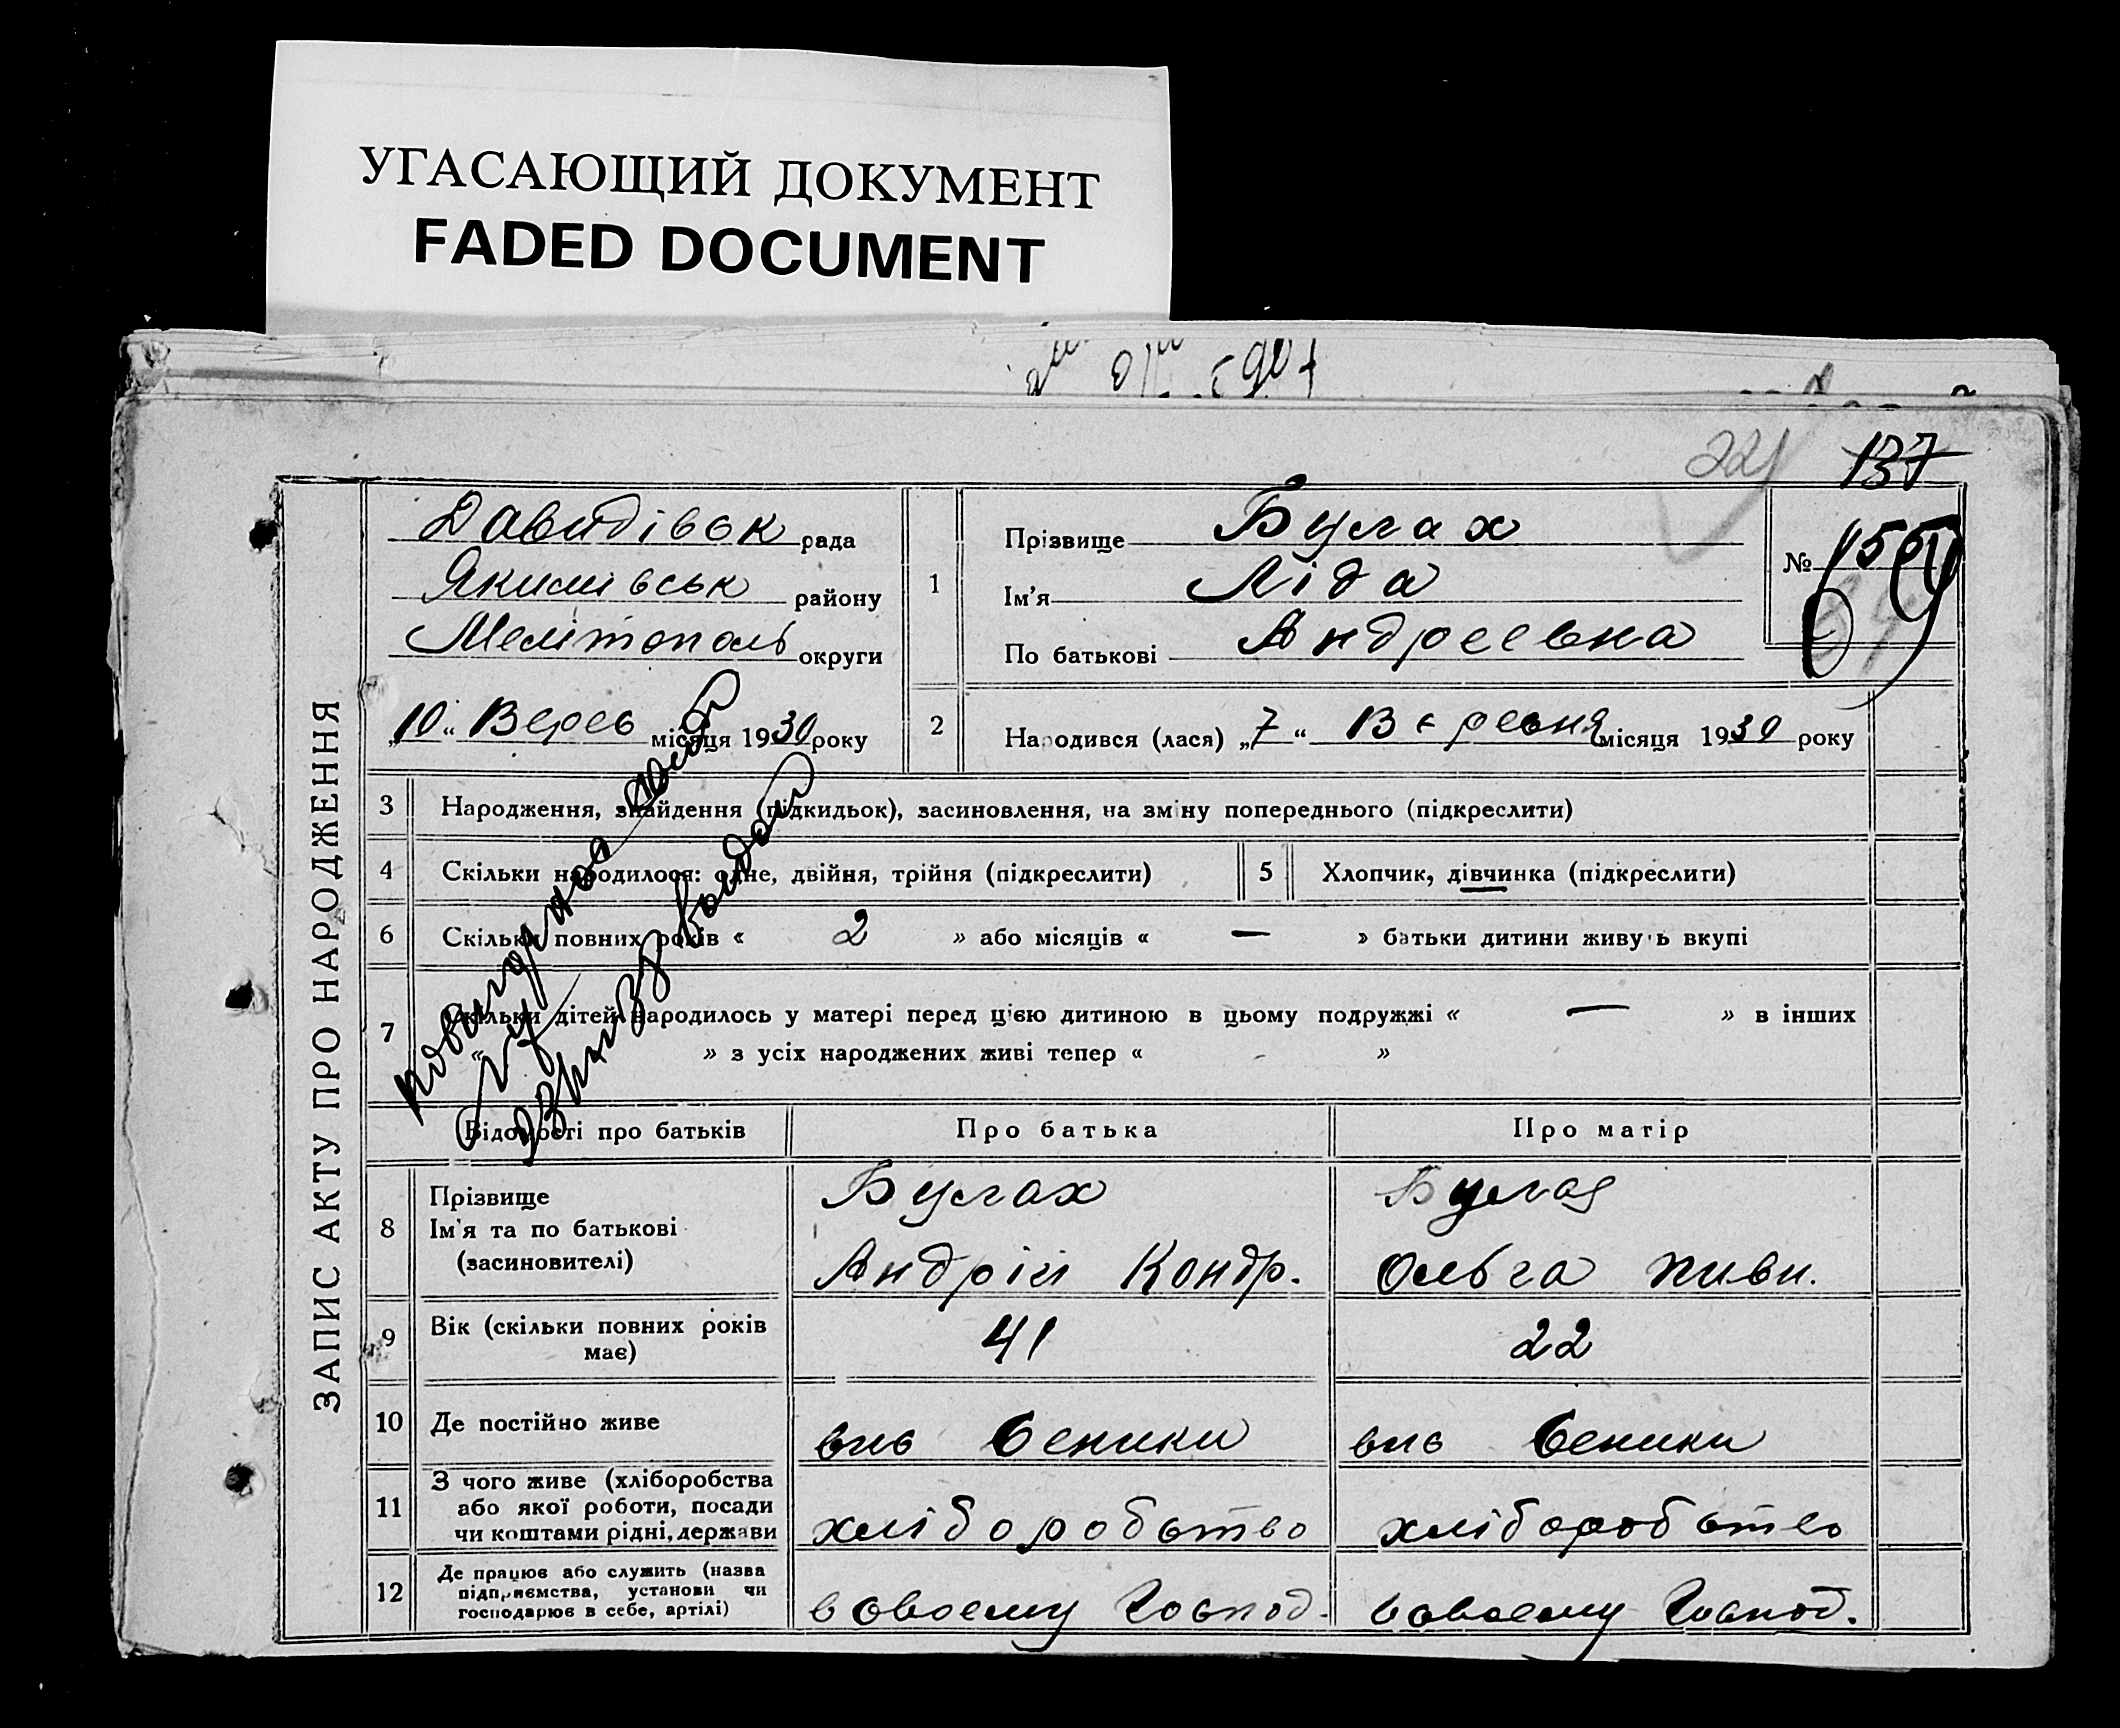 УГАСАЮЩИЙ ДОКУМЕНТ
FADED DOCUMENT
221
137
ЗАПИС АКТУ ПРО НАРОДЖЕННЯ
Давидівск рада
Якимівськ району
Мелітополь округи
„10“ Верес місяця 1930 року
1
Прізвище Булах
Ім'я Ліда
По батькові Андреевна
№ 155
2
Народився (лася) „7“ Вересня місяця 1930 року
3 Народження, знайдення (підкидьок), засиновлення, на зміну попереднього (підкреслити)
4 Скільки народилося: одне, двійня, трійня (підкреслити)
5 Хлопчик, дівчинка (підкреслити)
6 Скільки повних років « 2 » або місяців « — » батьки дитини живуть вкупі
7 Скільки дітей народилось у матері перед цією дитиною в цьому подружжі « — » в інших
« » з усіх народжених живі тепер « - »
Відомості про батьків
Про батька
Про матір
8 Прізвище
Ім'я та по батькові
(засиновителі)
Булах
Андрій Кондр.
Булах
Ольга
9 Вік (скільки повних років
має)
41
22
10 Де постійно живе
Веники
Веники
11 З чого живе (хліборобства
або якої роботи, посади
чи коштами рідні, держави
хліборобство
хліборобство
12 Де працює або служить (назва
підприємства, установи чи
господарює в себе, артілі)
в своему Господ.
в своему Господ.